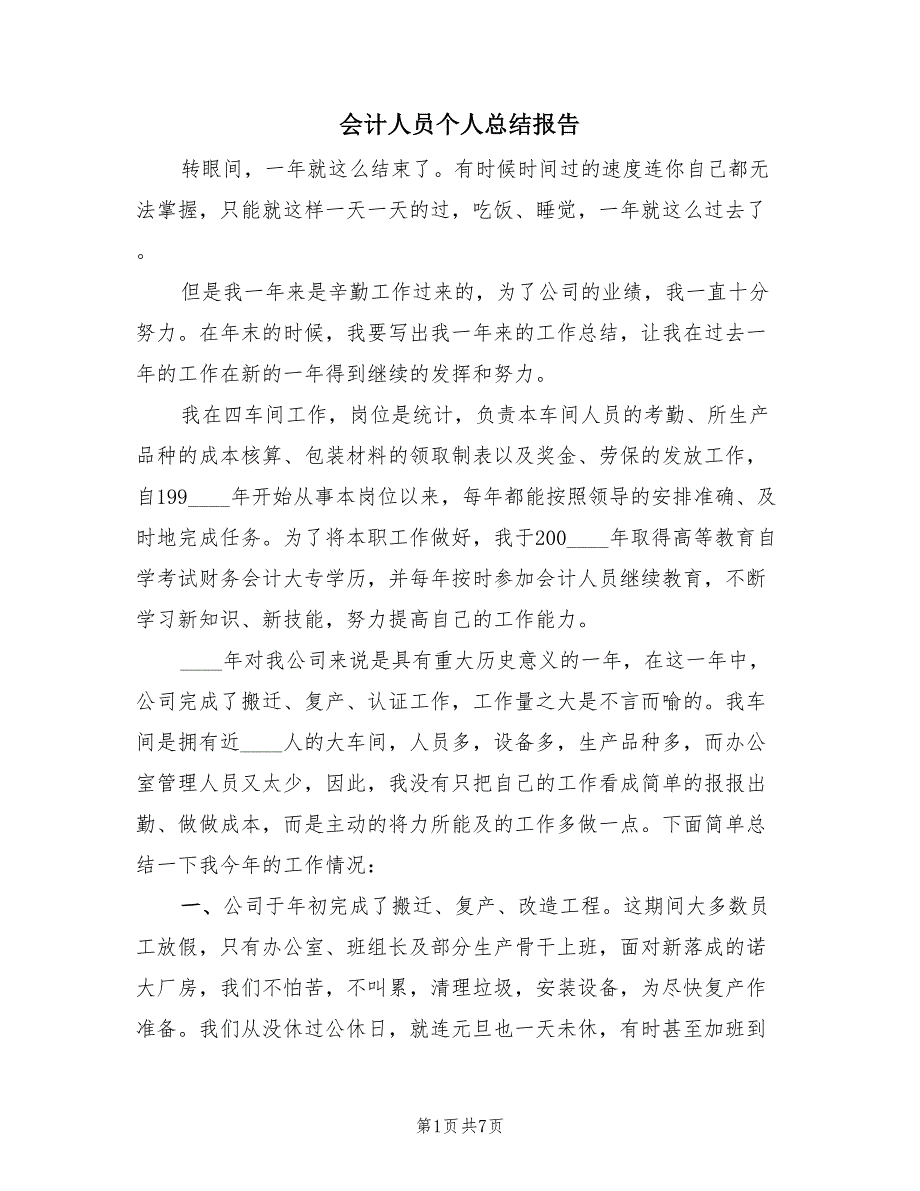 会计人员个人总结报告
转眼间，一年就这么结束了。有时候时间过的速度连你自己都无
法掌握，只能就这样一天一天的过，吃饭、睡觉，一年就这么过去了
。
但是我一年来是辛勤工作过来的，为了公司的业绩，我一直十分
努力。在年末的时候，我要写出我一年来的工作总结，让我在过去一
年的工作在新的一年得到继续的发挥和努力。
我在四车间工作，岗位是统计，负责本车间人员的考勤、所生产
品种的成本核算、包装材料的领取制表以及奖金、劳保的发放工作，
自199____年开始从事本岗位以来，每年都能按照领导的安排准确、及
时地完成任务。为了将本职工作做好，我于200____年取得高等教育自
学考试财务会计大专学历，并每年按时参加会计人员继续教育，不断
学习新知识、新技能，努力提高自己的工作能力。
____年对我公司来说是具有重大历史意义的一年，在这一年中，
公司完成了搬迁、复产、认证工作，工作量之大是不言而喻的。我车
间是拥有近____人的大车间，人员多，设备多，生产品种多，而办公
室管理人员又太少，因此，我没有只把自己的工作看成简单的报报出
勤、做做成本，而是主动的将力所能及的工作多做一点。下面简单总
结一下我今年的工作情况：
一、公司于年初完成了搬迁、复产、改造工程。这期间大多数员
工放假，只有办公室、班组长及部分生产骨干上班，面对新落成的诺
大厂房，我们不怕苦，不叫累，清理垃圾，安装设备，为尽快复产作
准备。我们从没休过公休日，就连元旦也一天未休，有时甚至加班到
第1页共7页